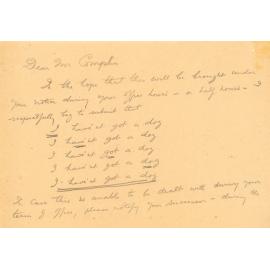 Dear Mr Compston
In the hope that this will be brought under
your notice during your office hours - or half hours - I
respectfully beg to submit that
I haven't got a dog
I haven't got a dog
I haven't got a dog
I haven't got a dog
I haven't got a dog
In case this is unable to be dealt with during your
term of office, please notify your successor - during the